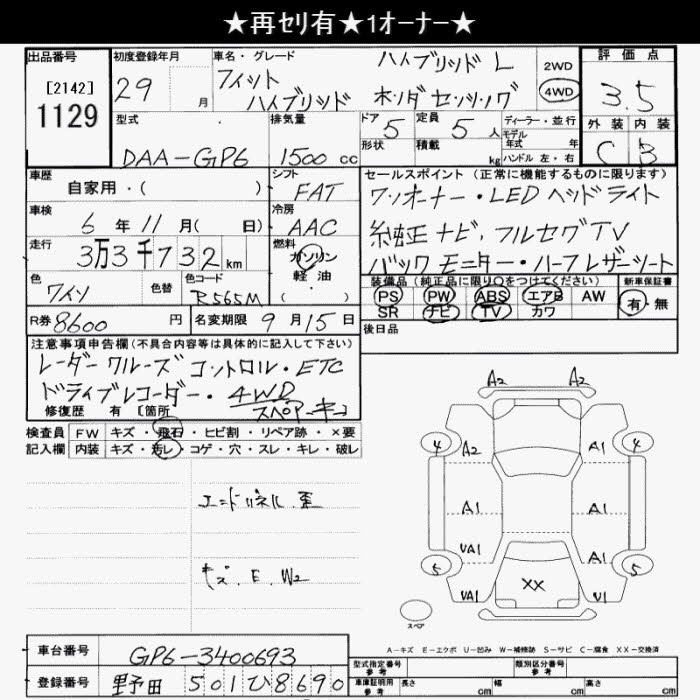 ★再セリ有★1オーナー★
出品番号 初度登録年月 車名・グレード 評価点
[2142] 1129
29 月
フィット ハイブリッド L
ハイブリッド ホンダセンシング
2WD
4WD
3.5
外装 内装
C B
型式 排気量 ドア 定員 ディーラー・並行
DAA-GP6 1500 cc 5 5 人
形状 積載 kg
モデル年式 年
ハンドル 左・右
車歴 シフト セールスポイント (正常に機能するものに限ります)
自家用・( ) FAT
ワンオーナー・LEDヘッドライト
車検 冷房
6 年 11 月( 日) AAC
純正ナビ・フルセグTV
走行 燃料
3万3千732 km ガソリン
軽油
・( )
バックモニター・ハーフレザーシート
色 色替 色コード
ワイン R565M
装備品 (純正品に限り○をつけてください) 新車保証書
PS PW ABS エアB AW 有・無
SR ナビ TV カワ
R券 8600 円 名変期限 9 月 15 日
後日品
注意事項申告欄(不具合内容等は具体的に記入して下さい)
レーダークルーズコントロール・ETC
ドライブレコーダー・4WD
スペアーキー
修復歴 有 [箇所
検査員 FW キズ・飛石・ヒビ割・リペア跡・×要
記入欄 内装 キズ・汚レ・コゲ・穴・スレ・キレ・破レ
エンドパネル 歪
キズ. E. W2
A2 A2
4 A2 A1 4
A1 A1
UA1 A1
5 XX 5
UA1 U1
スペア
A-キズ E-エクボ U-凹み W-補修跡 S-サビ C-腐食 XX-交換済
車台番号 GP6-3400693
型式指定番号 参考 類別区分番号 参考
登録番号 野田 501ひ8690
車庫証明用 参考 長さ cm 幅 cm 高さ cm